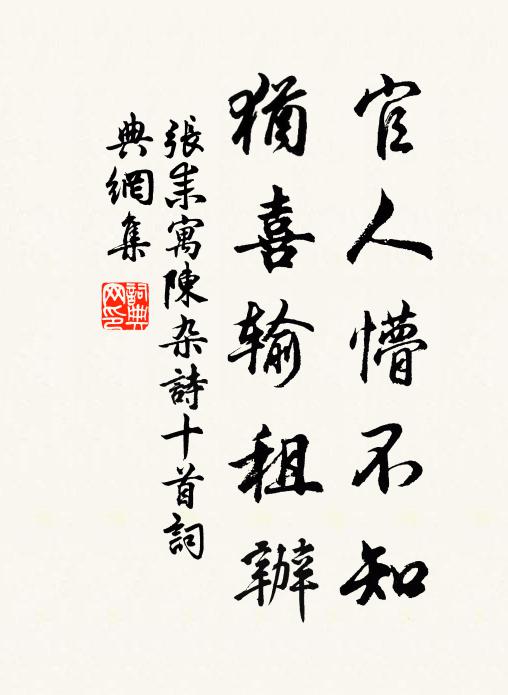 官人懵不知
猶喜輸租辦
張耒寓陳杂詩十首詞
典網集
詞典網印